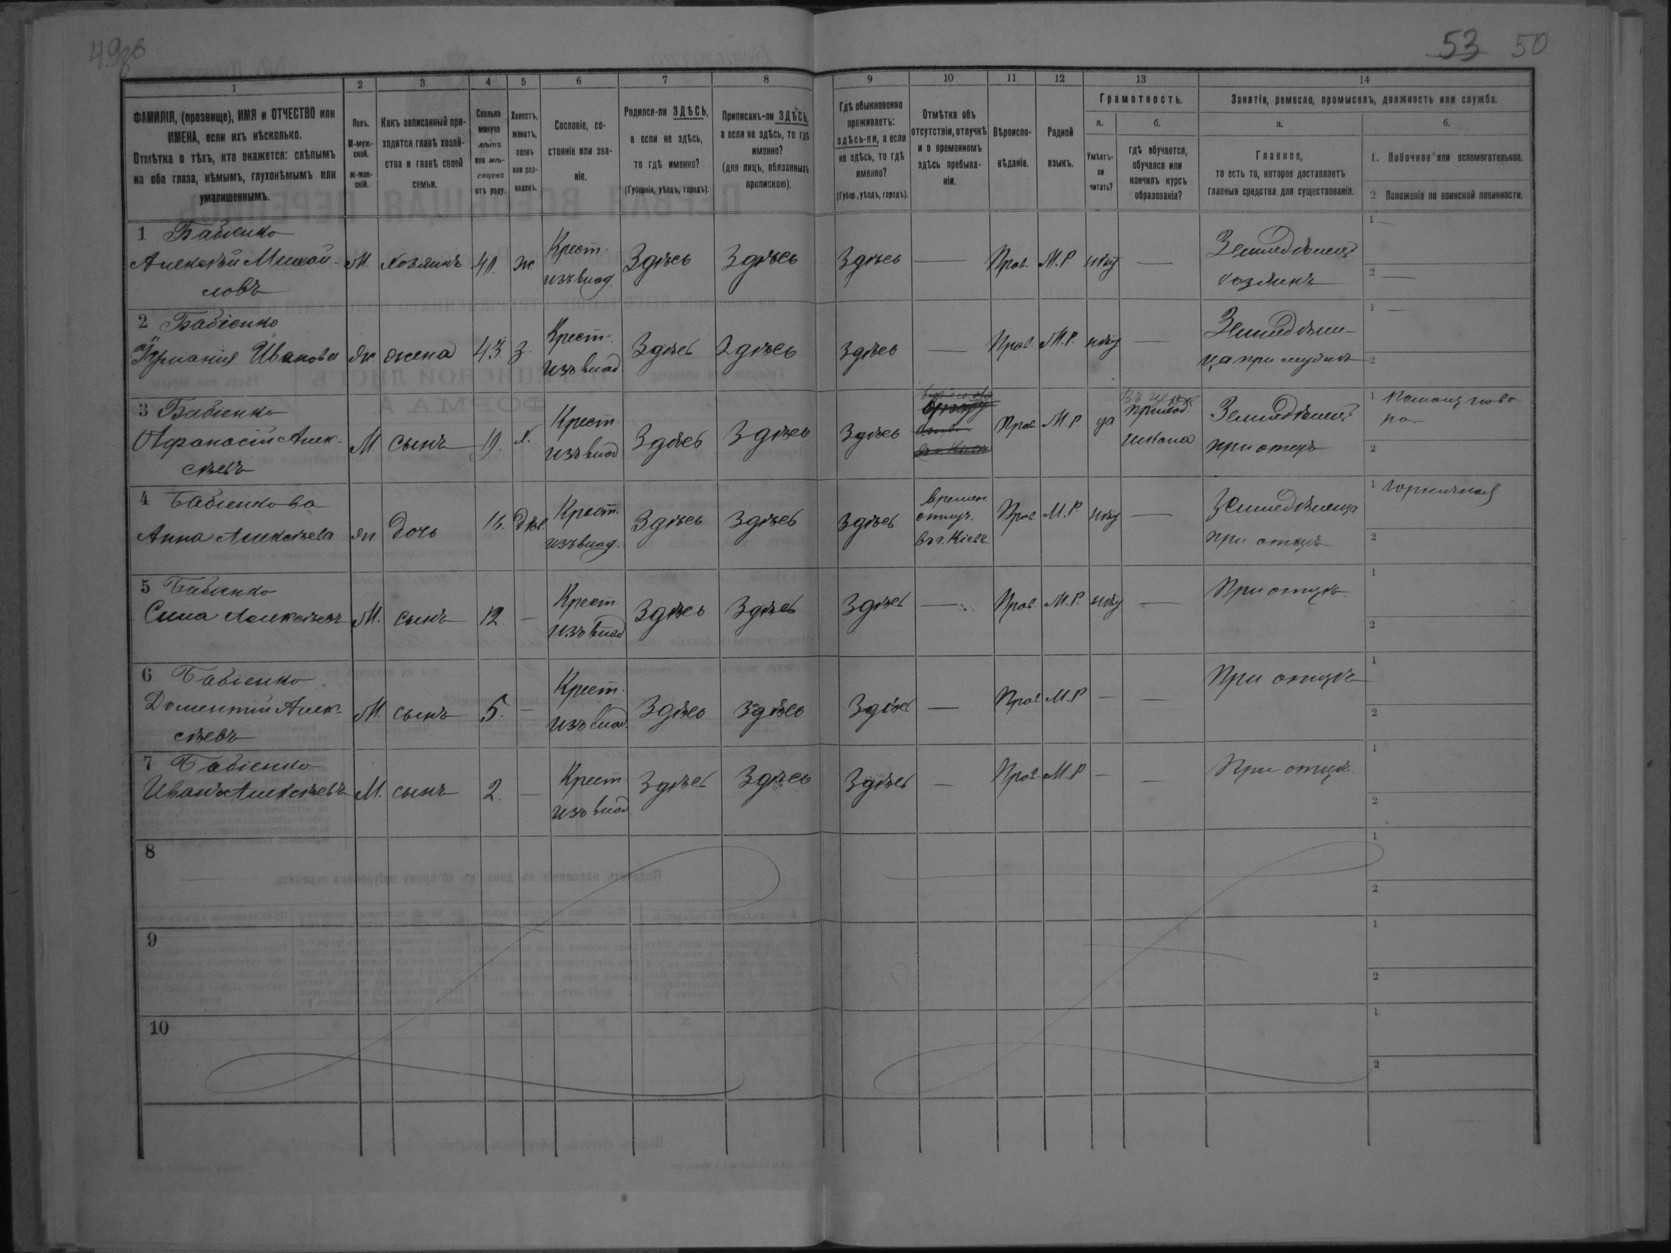 49об
53 50
1 2 3 4 5 6 7 8 9 10 11 12 13 14
ФАМИЛІЯ, (прозвище), ИМЯ и ОТЧЕСТВО или
ИМЕНА, если ихъ нѣсколько.
Отмѣтка о тѣхъ, кто окажется: слѣпымъ
на оба глаза, нѣмымъ, глухонѣмымъ или
умалишеннымъ.
Полъ.
М-муж-
ской.
ж-жен-
скій.
Какъ записанный при-
ходится главѣ хозяй-
ства и главѣ своей
семьи.
Сколько
минуло
лѣтъ
или мѣ-
сяцевъ
отъ роду.
Холостъ,
женатъ,
вдовъ
или раз-
веденъ.
Сословіе, со-
стояніе или зва-
ніе.
Родился-ли ЗДѢСЬ,
а если не здѣсь,
то гдѣ именно?
(Губернія, уѣздъ, городъ).
Приписанъ-ли ЗДѢСЬ,
а если не здѣсь, то гдѣ
именно?
(для лицъ, обязанныхъ
припискою).
Гдѣ обыкновенно
проживаетъ:
здѣсь-ли, а если
не здѣсь, то гдѣ
именно?
(Губер., уѣздъ, городъ).
Отмѣтка объ
отсутствіи, отлучкѣ
и о временномъ
здѣсь пребыва-
ніи.
Вѣроиспо-
вѣданіе.
Родной
языкъ.
Грамотность.
а.
Умѣетъ-
ли
читать?
б.
гдѣ обучается,
обучался или
кончилъ курсъ
образованія?
Занятіе, ремесло, промыселъ, должность или служба.
а.
Главное,
то есть то, которое доставляетъ
главныя средства для существованія.
б.
1. Побочное или вспомогательное.
2 Положеніе по воинской повинности.
1 Бабіенко
Алексѣй Михай-
ловъ
М. хозяинъ ж Крест.
изъ влад. Здѣсь Здѣсь Здѣсь — Прав. М.Р нѣт — Земледѣлецъ
хозяинъ
1 —
2 —
2 Бабіенко
Иванова
ж. жена 43 з Крест.
изъ влад Здѣсь Здѣсь Здѣсь — Прав. М.Р нѣт — Земледѣли-
ца при мужѣ
1 —
2
3 Бабіенко
Афанасій Алек-
сѣевъ
М. сынъ х. Крест.
изъ влад Здѣсь Здѣсь Здѣсь Прав М.Р да приход
школа Земледѣлецъ
при отцѣ
1
2
4 Бабіенкова
Анна Алексѣева
ж дочь Дѣв. Крест.
изъ влад. Здѣсь Здѣсь Здѣсь времен
отлуч.
въ г. Кіевъ Прав М.Р нѣт — Земледѣлица
при отцѣ
1 горничная
2
5 Бабіенко
Сила Алексѣевъ М. сынъ 12 — Крест.
изъ влад Здѣсь Здѣсь Здѣсь — Прав. М.Р. нѣт — При отцѣ
1
2
6 Бабіенко
Дометій Алек-
сѣевъ
М. сынъ 5. — Крест.
изъ влад. Здѣсь здѣсь Здѣсь — Прав М.Р — — При отцѣ
1
2
7 Бабіенко
Иванъ Алексѣевъ М. сынъ 2. — Крест
изъ влад Здѣсь Здѣсь Здѣсь — Прав М.Р — — При отцѣ.
1
2
8
1
2
9
1
2
10
1
2